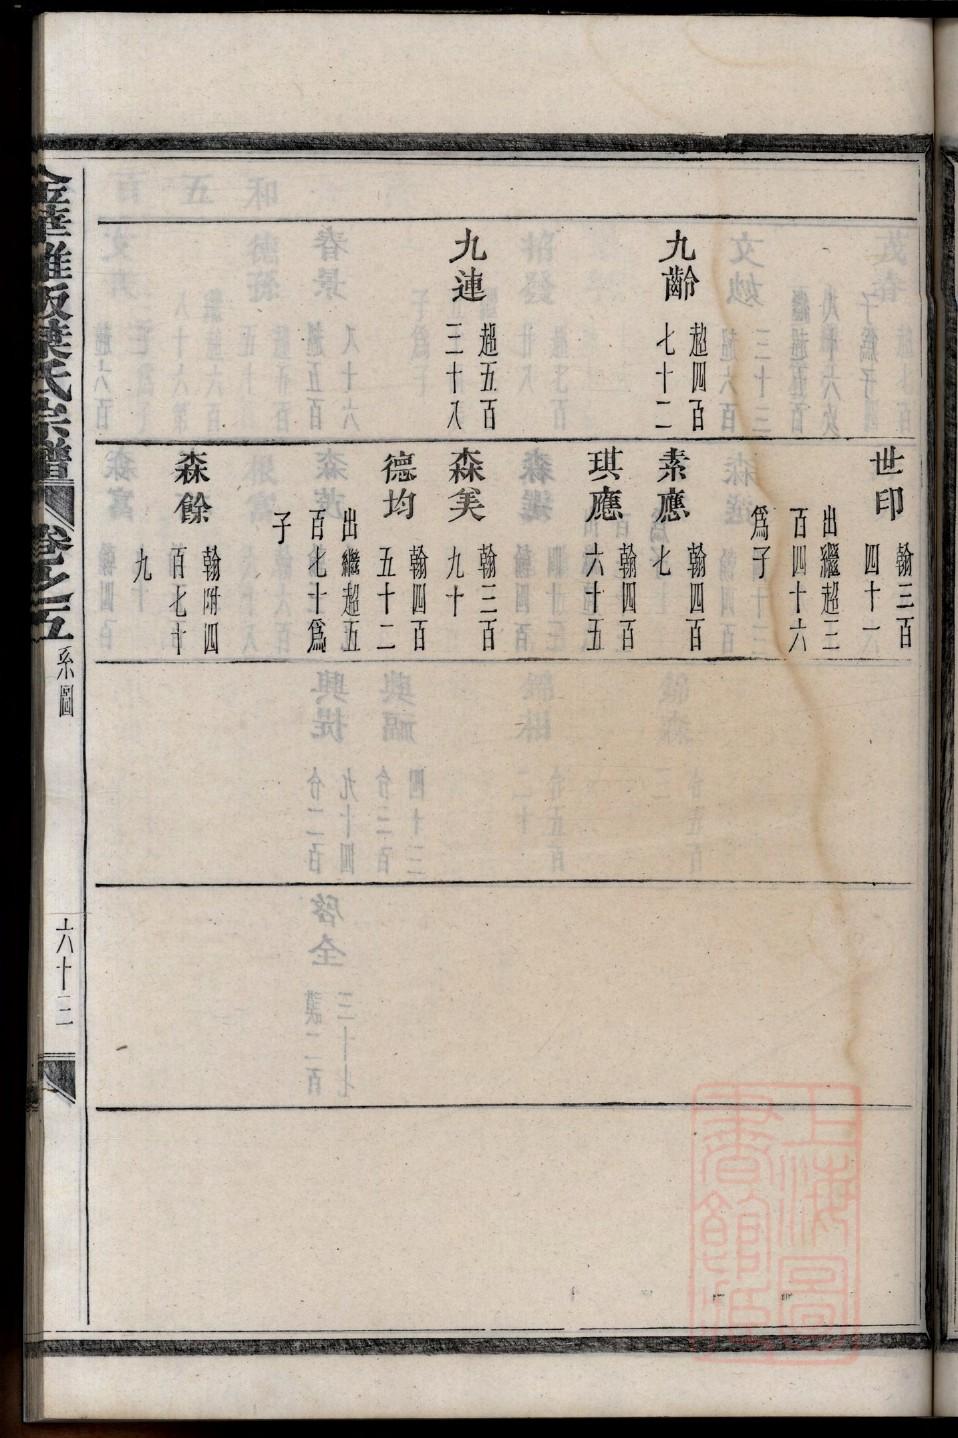 九齡
超四百
七十二
九連
超五百
三十八
世印
翰三百
四十一
出繼超三
百四十六
爲子
素應
翰四百
七
琪應
翰四百
六十五
森美
翰三百
九十
德均
翰四百
五十二
出繼超五
百七十爲
子
森餘
翰附四
百七十
九
金華雅畈葉氏宗譜
卷之五
系圖
六十三
上海圖
書館藏